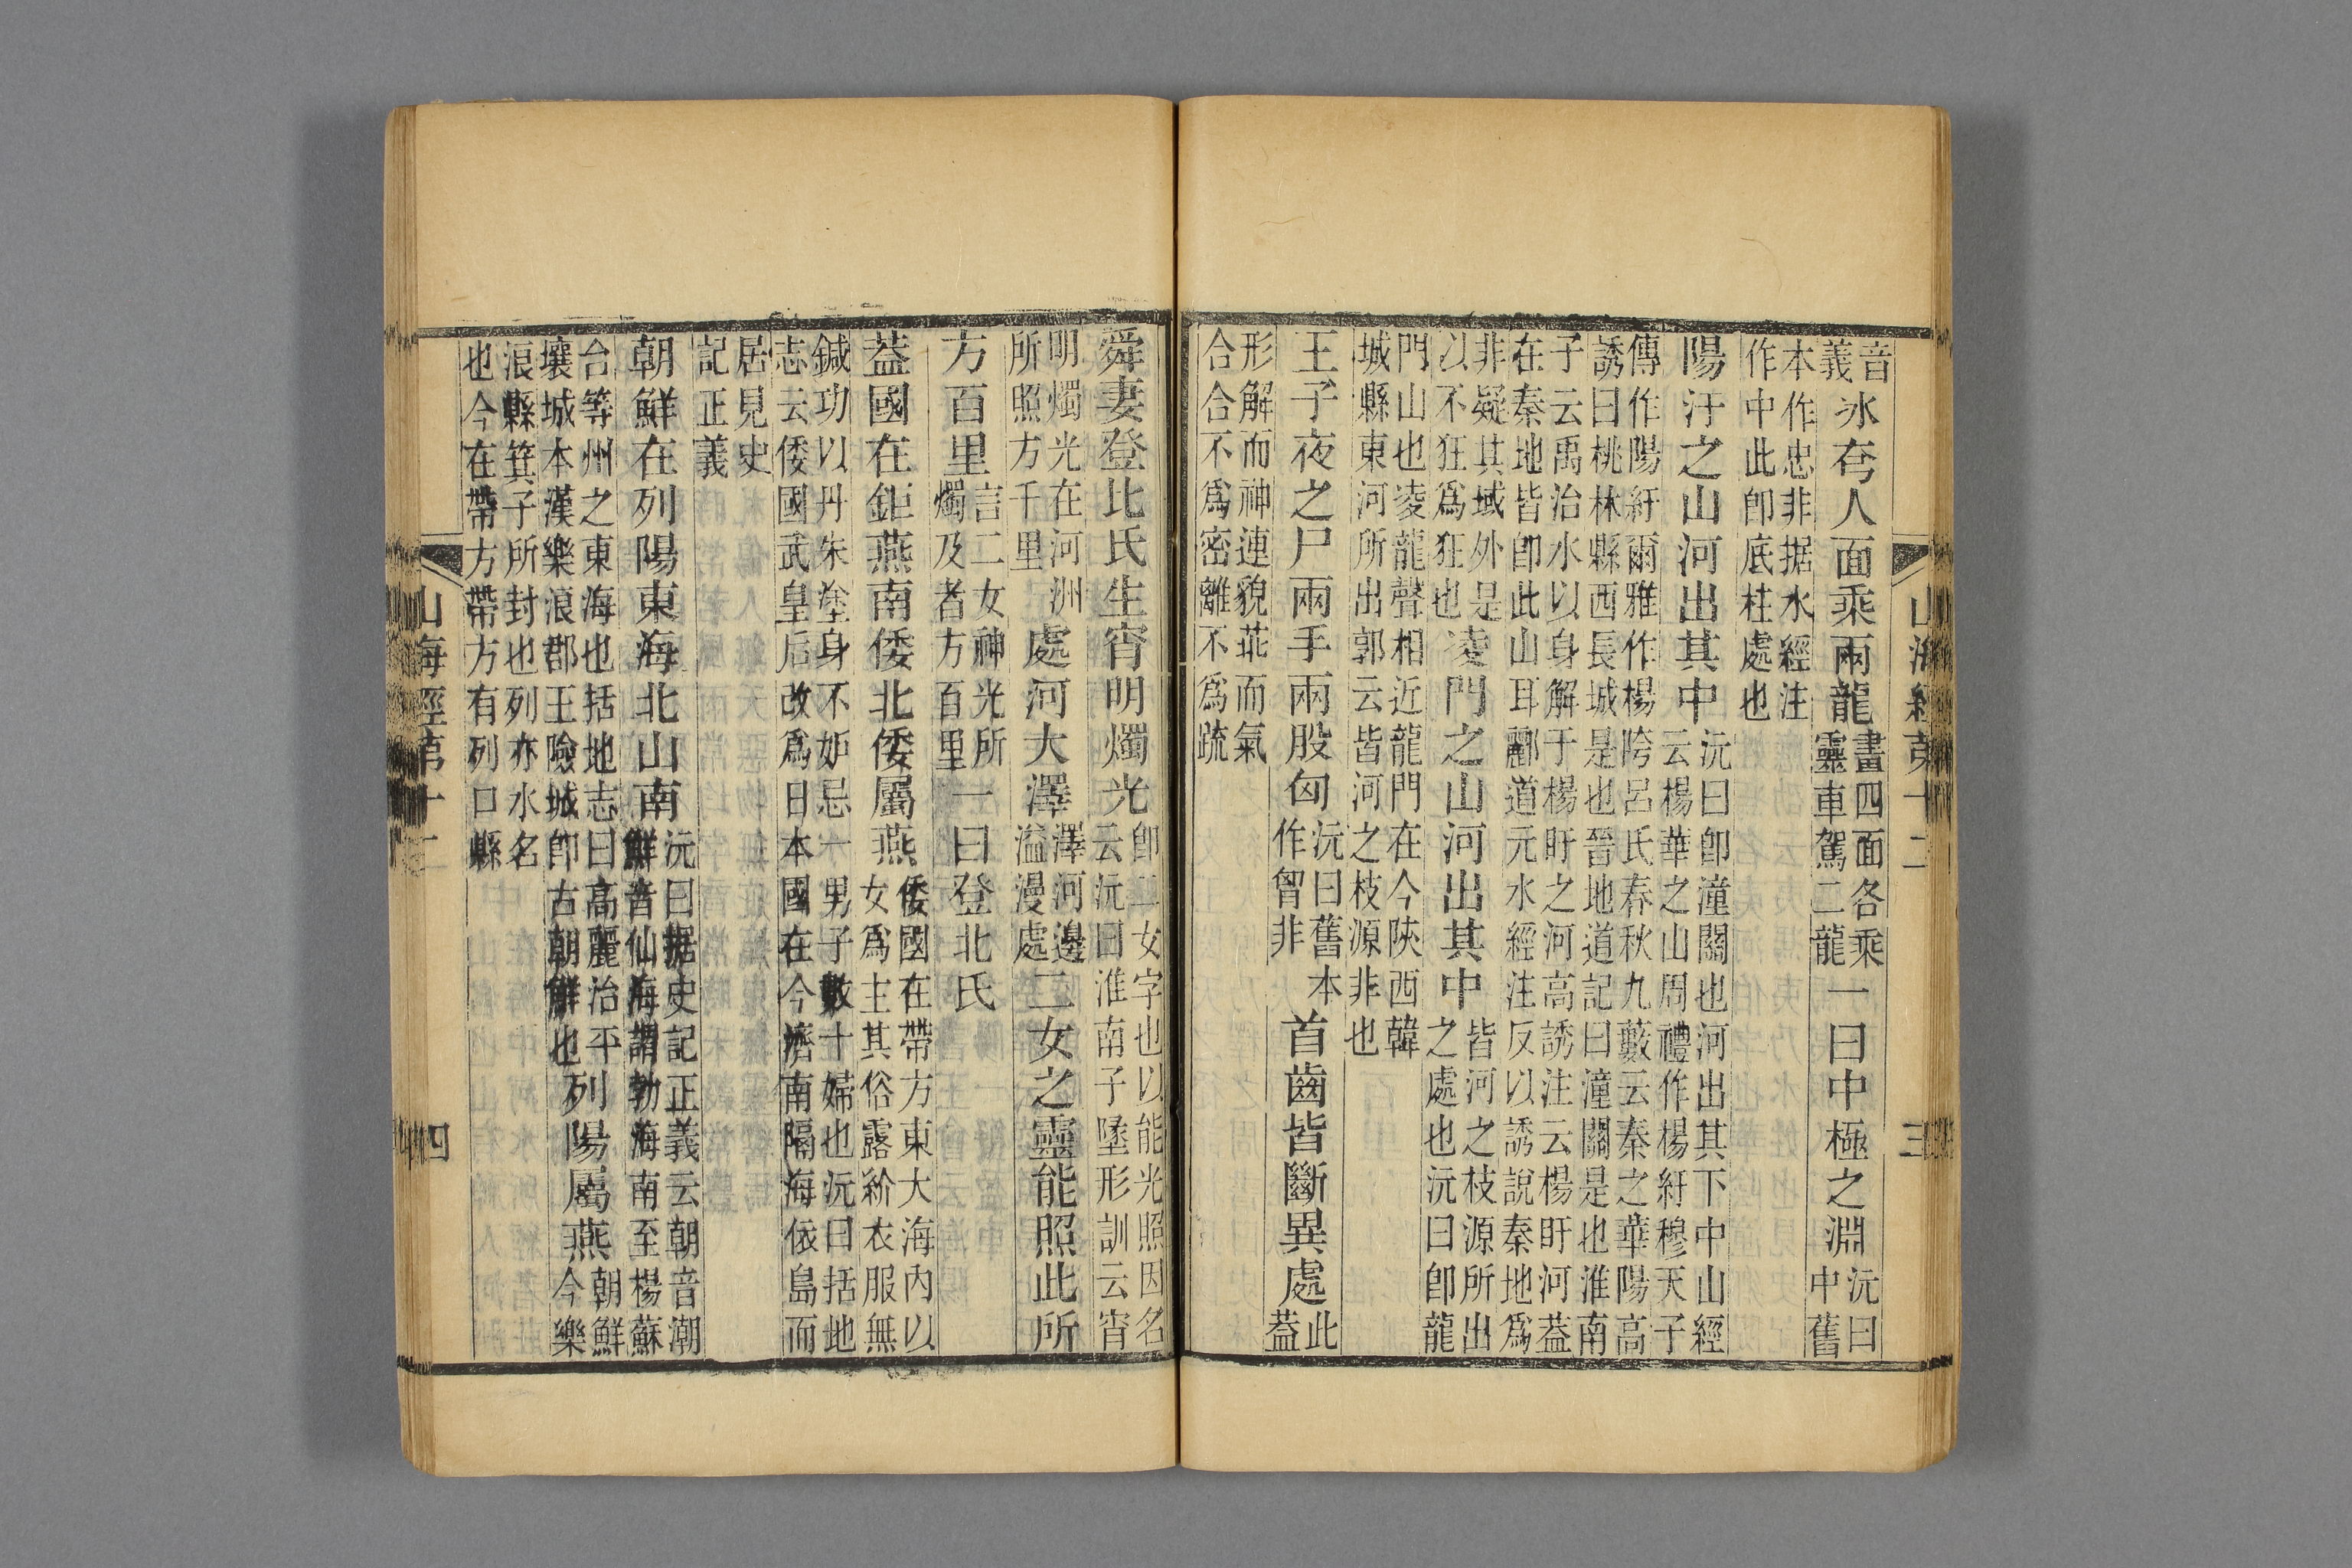 山海經第十二
三
音義冰夸人面乘兩龍畫四面各乘靈車駕二龍一曰中極之淵沅曰舊中
本作忠非据水經注作中此卽底柱處也
陽汙之山河出其中沅曰卽潼關也河出其下中山經云楊華之山周禮作楊紆穆天子
傳作陽紆爾雅作楊陓呂氏春秋九藪云秦之華陽高誘曰桃林縣西長城是也晉地道記曰潼關是也淮南
子云禹治水以身解于楊盱之河高誘注云楊盱河葢在秦地皆卽此山耳酈道元水經注反以誘說秦地爲
非疑其域外是以不狂爲狂也凌門之山河出其中皆河之枝源所出之處也沅曰卽龍
門山也凌龍聲相近龍門在今陜西韓城縣東河所出郭云皆河之枝源非也
王子夜之尸兩手兩股匈沅曰舊本作胷非首齒皆斷異處此葢
形解而神連貌乖而氣合合不爲密離不爲疏
舜妻登比氏生宵明燭光卽二女字也以能光照因名云沅曰淮南子墬形訓云宵
明燭光在河洲所照方千里處河大澤澤河邊溢漫處二女之靈能照此所
方百里言二女神光所燭及者方百里一曰登北氏
葢國在鉅燕南倭北倭屬燕倭國在帶方東大海內以女爲主其俗露紒衣服無
鍼功以丹朱塗身不妒忌一男子數十婦也沅曰括地志云倭國武皇后改爲日本國在今濟南隔海依島而
居見史記正義
朝鮮在列陽東海北山南沅曰据史記正義云朝音潮鮮音仙海謂勃海南至楊蘇
台等州之東海也括地志曰高麗治平壤城本漢樂浪郡王險城卽古朝鮮也列陽屬燕朝鮮今樂
浪縣箕子所封也列亦水名也今在帶方帶方有列口縣
山海經第十二
四